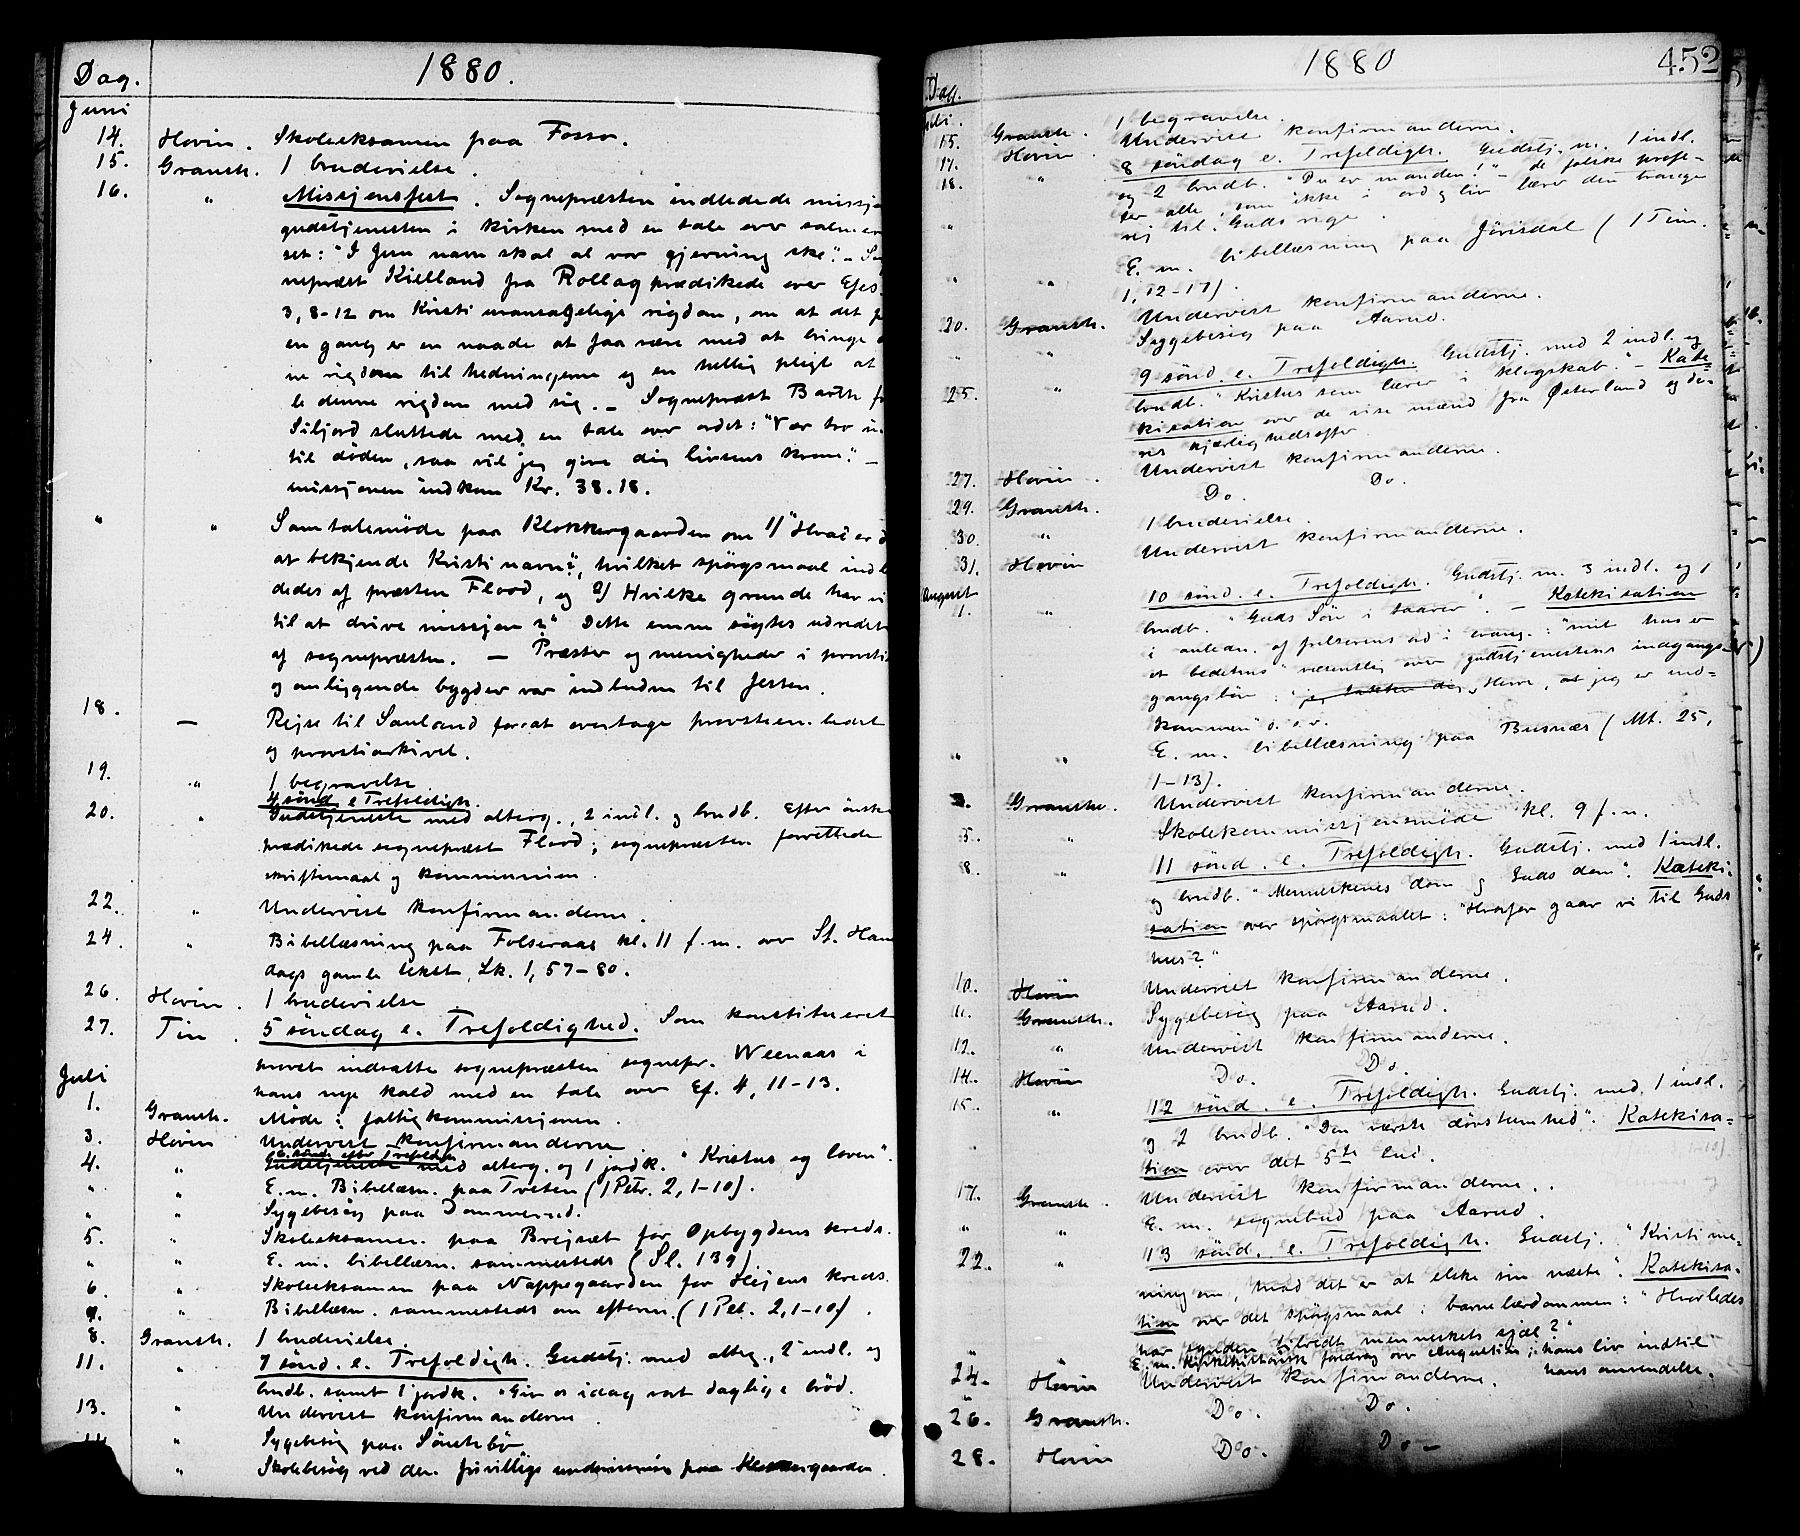 Dag. 1880.
Juni
14. Hovin. Skoleeksamen paa Fosso.
15. Gransh. 1 brudevielse.
16. " Missjonsfest. Sognepræsten indledede missjo
gudstjenesten i kirken med en tale over salmever
set: "I Jesu navn skal al vor gjerning ske." – So
nepræst Kielland fra Rollag prædikede over Efes.
3, 8-12 om Kristi uransagelige rigdom, om at det
en gang er en naade at faa være med at bringe
ne rigdom til hedningerne og en hellig pligt at
le denne rigdom med sig. – Sognepræst Barth f
Siljord sluttede med en tale over ordet: "Vær tro in
til døden, saa vil jeg give dig livsens krone." –
missjonen indkom Kr. 38.18.
" " Samtalemøde paa Klokkergaarden om 1/ "Hvad er d
at bekjende Kristi navn?", hvilket spørgsmaal indl
dedes af præsten Flood, og 2/ Hvilke grunde har vi
til at drive missjon?" Dette emne søgtes udredet
af sognepræsten. – Præster og menigheder i provsti
og omliggende bygder var indbudne til festen.
18. – Rejse til Sauland for at overtage provstiembedet
og provstiarkivet.
19. " 1 begravelse
4 sönd. e Trefoldigh.
20. " Gudstjeneste med alterg., 2 indl. og brudb. Efter ønske
prædikede sognepræst Flood; sognepræsten forrettede
skriftemaal og kommunion.
22. " Undervist konfirmanderne.
24. " Bibellæsning paa Folseraas kl. 11 f.m. over St. Hans
dags gamle tekst, Lk. 1, 57-80.
26. Hovin. 1 brudevielse
27. Tin. 5 söndag e. Trefoldighed. Som konstitueret
provst indsatte sognepræsten sognepr. Weenaas i
hans nye kald med en tale over Ef. 4, 11-13.
Juli
1. Gransh. Møde i fattigkommissjonen.
3. Hovin Undervist konfirmanderne
6. sönd. efter Trefoldigh.
4. " Gudstjeneste med alterg. og 1 jordk. "Kristus og loven".
" " E.m. Bibellæsn. paa Tveten (1 Petr. 2, 1-10).
" " Sygebesøg paa Dommerud.
5. " Skoleeksamen paa Brejsæt for Opbygdens kreds.
" " E.m. bibellæsn. sammesteds (Sl. 139).
6. " Skoleeksamen paa Nappegaarden for Højens kreds.
" Bibellæsn. sammesteds om efterm. (1 Pet. 2, 1-10).
8. Gransh. 1 brudevielse
11. " 7 sönd. e. Trefoldigh. Gudstj. med alterg., 2 indl. og
brudb. samt 1 jordk. "Giv os idag vort daglige brød.
13. " Undervist konfirmanderne.
14 " Sygebesøg paa
" Skolebesøg ved den frivillige undervisning paa

1880 452
Dag.
Juli.
15. Gransh. 1 begravelse.
17. Hovin. Undervist konfirmanderne.
18. " 8 söndag e. Trefoldigh. Gudstj. m. 1 indl.
og 2 brudb. "Du er manden!" – de falske profe-
ter alle, som ikke i ord og liv lærer den trange
vej til Guds rige.
" E. m. bibellæsning paa Jörisdal (1 Tim.
1, 12-17).
" " Undervist konfirmanderne.
20. Gransh. Sygebesøg paa Aarud.
25. " 9 sönd. e. Trefoldigh. Gudstj. med 2 indl. og
brudb. "Kristus som lærer i klogskab." – Kate-
kisation over de vise mænd fra Østerland og de-
res kjærlighedsoffer.
27. Hovin. Undervist konfirmanderne.
29. Gransh. Do. Do.
30. " 1 brudevielse.
31. Hovin Undervist konfirmanderne.
August
1. " 10 sönd. e. Trefoldigh. Gudstj. m. 3 indl. og 1
brudb. "Guds Søn i taarer". – Katekisation
i anledn. af frelserens ord i evang.: "mit hus er
et bedehus" væsentlig over gudstjenestens indgangs-
gangsbøn: "jeg takker dig, Herre, at jeg er ind-
kommen" o. s. v.
" " E. m. bibellæsning paa Busnæs (Mt. 25,
1-13).
3. Gransh. Undervist konfirmanderne.
5. " Skolekommissjonsmøde kl. 9 f.m.
8. " 11 sönd. e. Trefoldigh. Gudstj. med 1 indl.
og brudb. "Menneskenes dom og Guds dom". Kateki-
sation over spørgsmaalet: "Hvorfor gaar vi til Guds
hus?"
10. Hovin Undervist konfirmanderne.
11. Gransh. Sygebesøg paa Aarud.
12. " Undervist konfirmanderne.
14. Hovin Do. Do.
15. " 12 sönd. e. Trefoldigh. Gudstj. med 1 indl.
og 2 brudb. "Den værste døvstumhed". Katekisa-
tion over det 5te bud.
17. Gransh. Undervist konfirmanderne.
" " E. m. sognebud paa Aarud.
22. " 13 sönd. e. Trefoldigh. Gudstj. "Kristi me-
ning om, hvad det er at elske sin næste". Katekisa-
tion over det spørgsmaal i barnelærdommen: "Hvorledes
har synden tilredt menneskets sjæl?"
" " E. m. kirkehistorisk foredrag over Augustin; hans liv indtil
hans omvendelse.
24. Hovin Undervist konfirmanderne.
26. Gransh. Do. Do.
28. Hovin Do. Do –